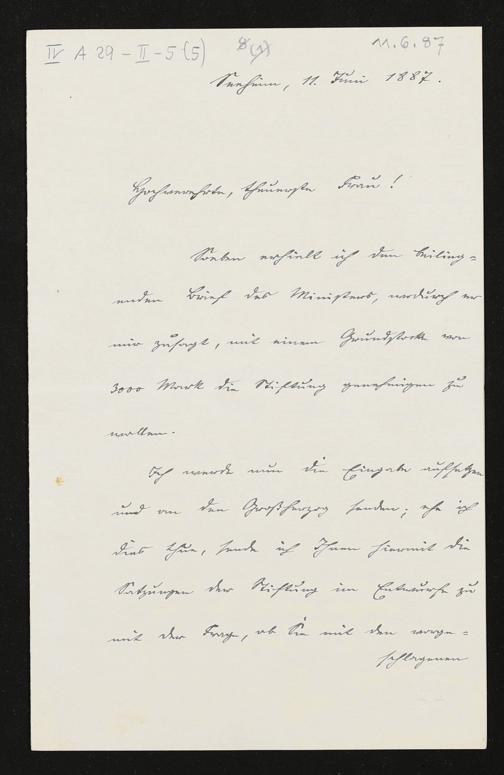 IV A 29 - II - 5 (5) 8(1) 11.6.87
Seeheim, 11. Juni 1887.
Hochverehrte, theuerste Frau!
Soeben erhielt ich den beilieg=
enden Brief des Ministers, wodurch er
mir zusagt, mit einem Grundstocke von
3000 Mark die Stiftung genehmigen zu
wollen.
Ich werde nun die Eingabe aufsetzen
und an den Großherzog senden; ehe ich
dies thue, sende ich Ihnen hiermit die
Satzungen der Stiftung im Entwurfe zu
mit der Frage, ob Sie mit den vorge=
schlagenen